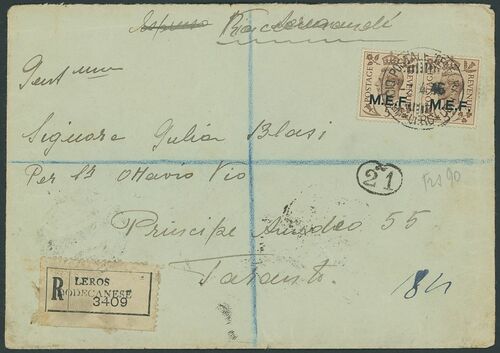 Espresso Raccomandí
POSTAGE REVENUE POSTAGE REVENUE
M.E.F. M.E.F.
Gent ma
Signora Giulia Blasi
Per St Ottavio Vio
21
Frs 90
Principe Amedeo 55
Taranto.
184
R LEROS
DODECANESE
3409